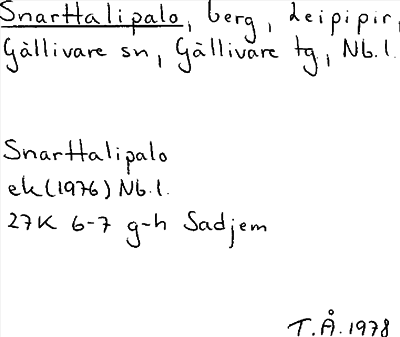 Snarttalipalo, berg, Leipipir,
Gällivare sn, Gällivare tg, Nb. l.
Snarttalipalo
ek (1976) Nb. l.
27K 6-7 g-h Sadjem
T.Å. 1978